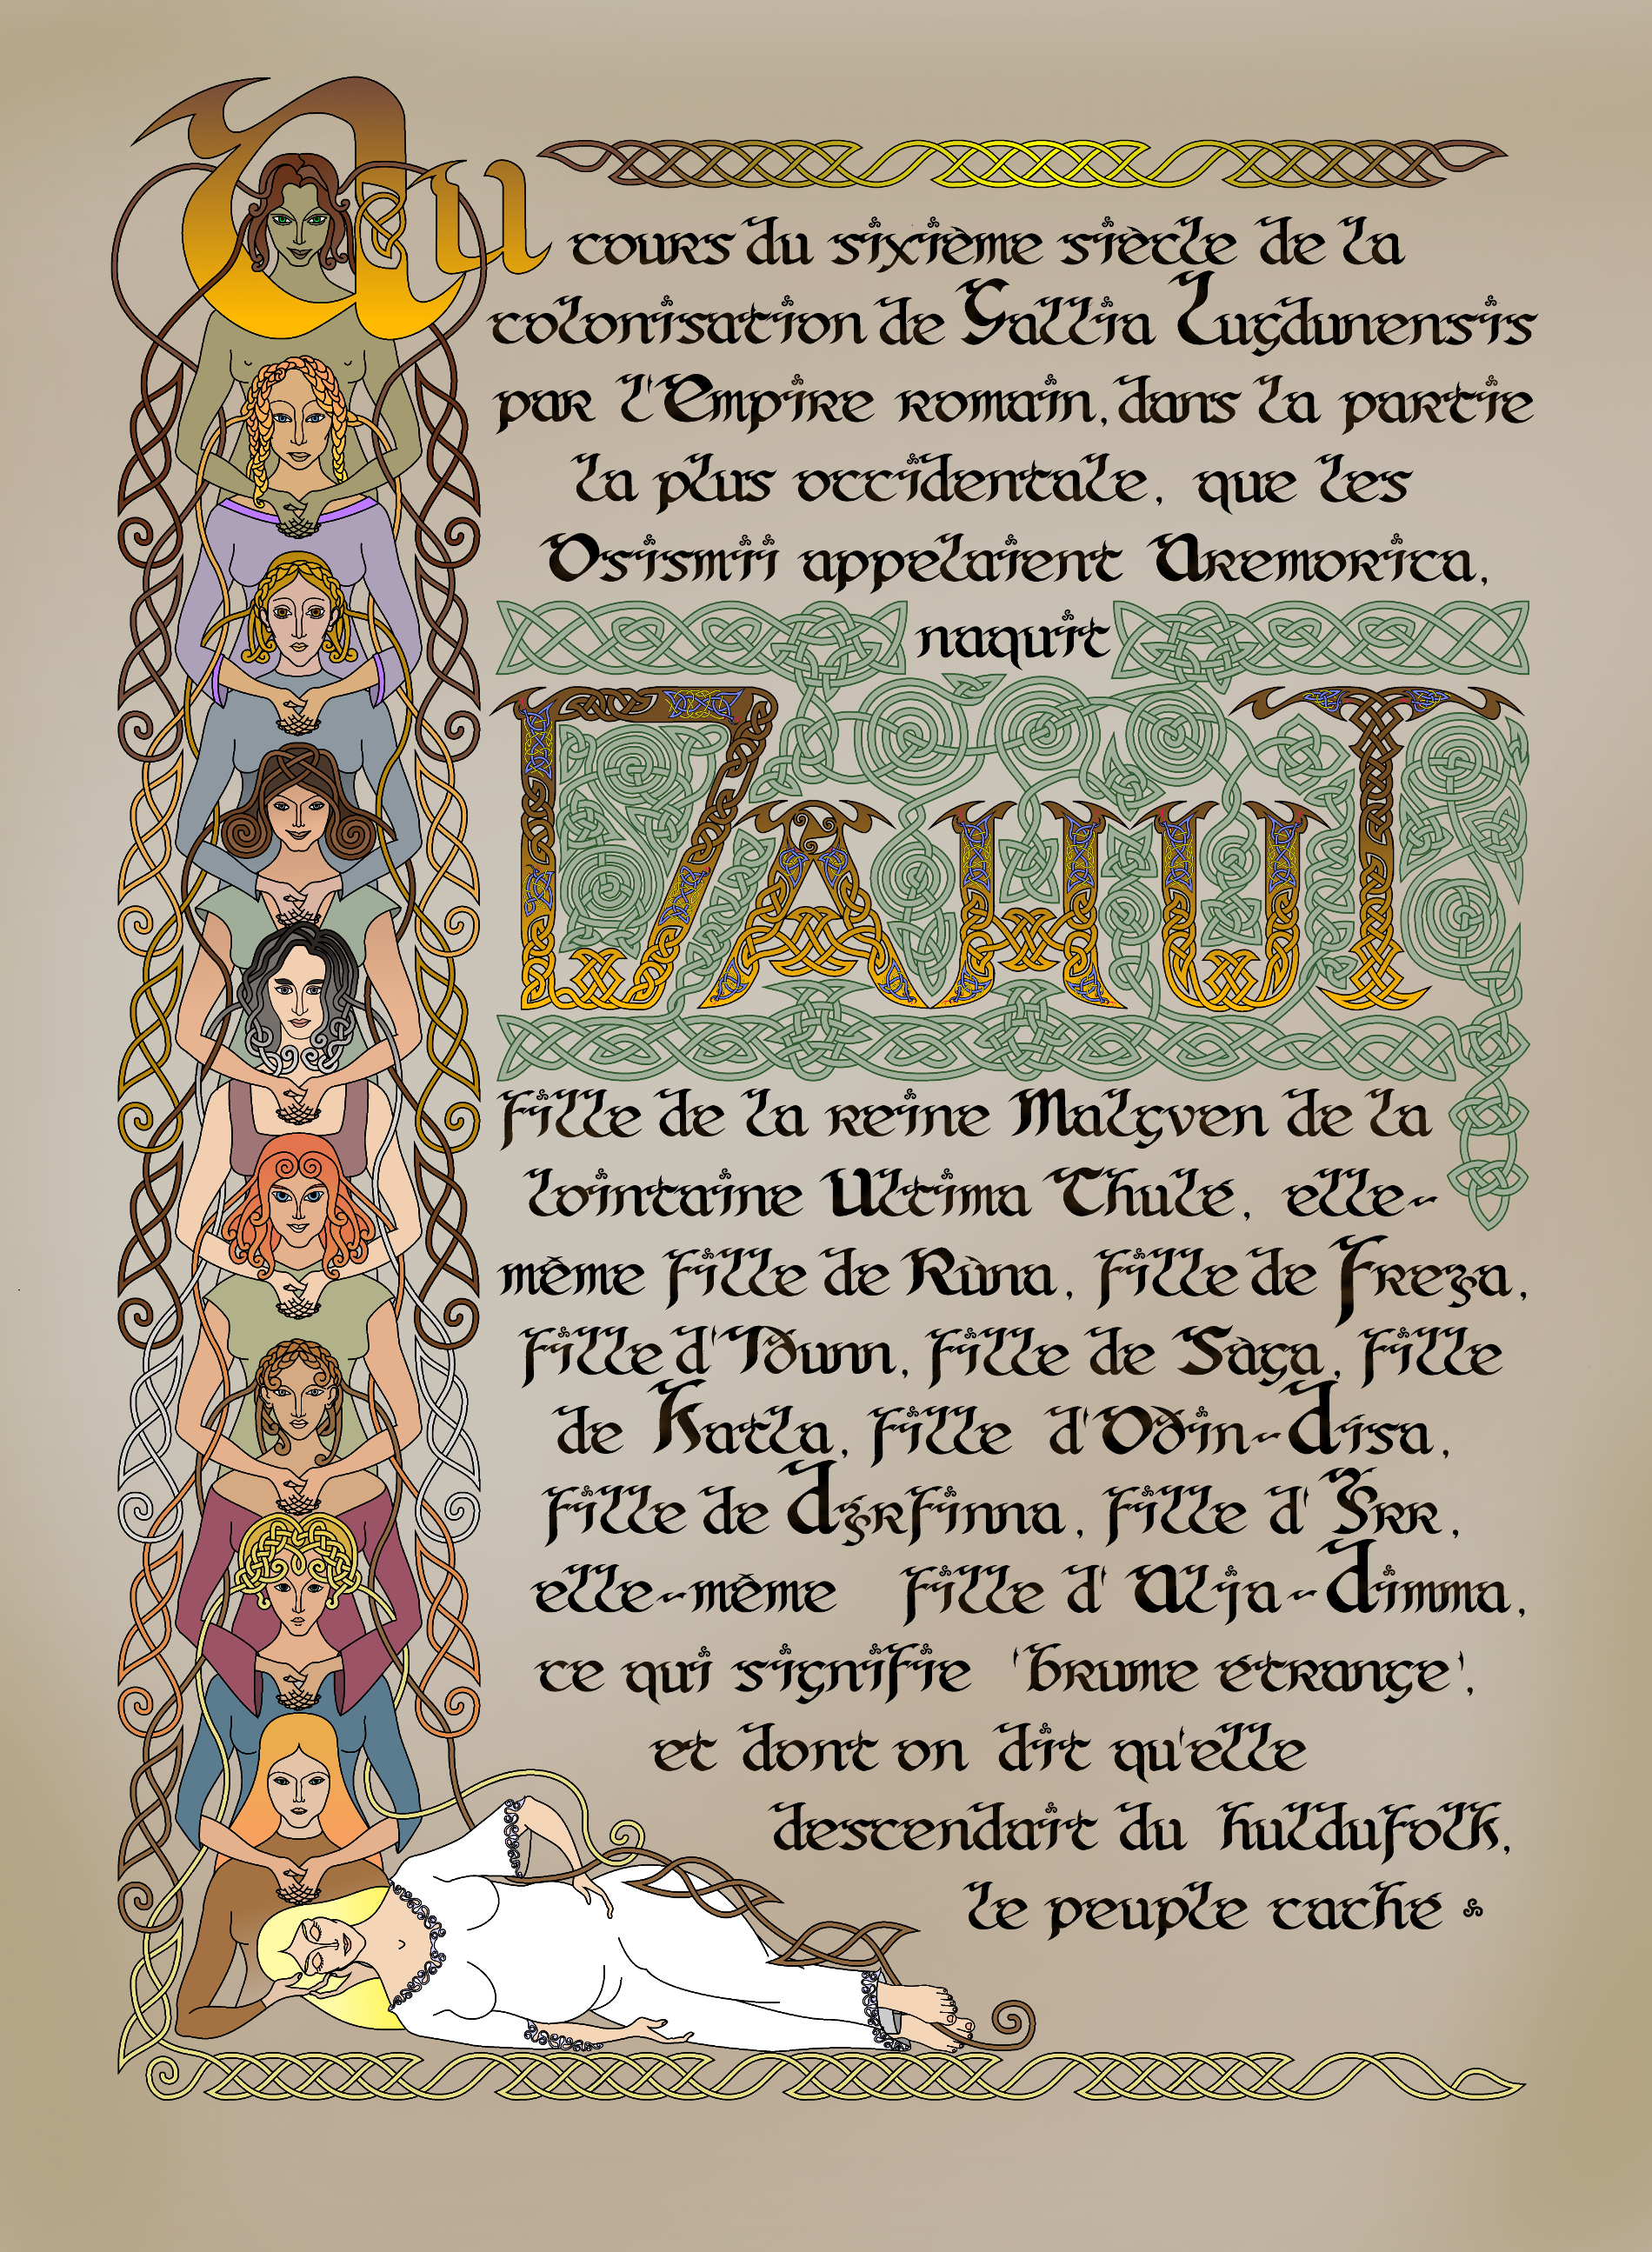 Au cours du sixième siècle de la
colonisation de Gallia Lugdunensis
par l'Empire romain, dans la partie
la plus occidentale, que les
Osismii appelaient Aremorica,
naquit
DAHUT
fille de la reine Malgven de la
lointaine Ultima Thulé, elle-
même fille de Rùna, fille de Freya,
fille d'Iðunn, fille de Sàga, fille
de Katla, fille d'Oðin-Dísa,
fille de Dyrfinna, fille d'Yrr,
elle-même fille d'Alja-Dimma,
ce qui signifie 'brume étrange',
et dont on dit qu'elle
descendait du huldufolk,
le peuple caché